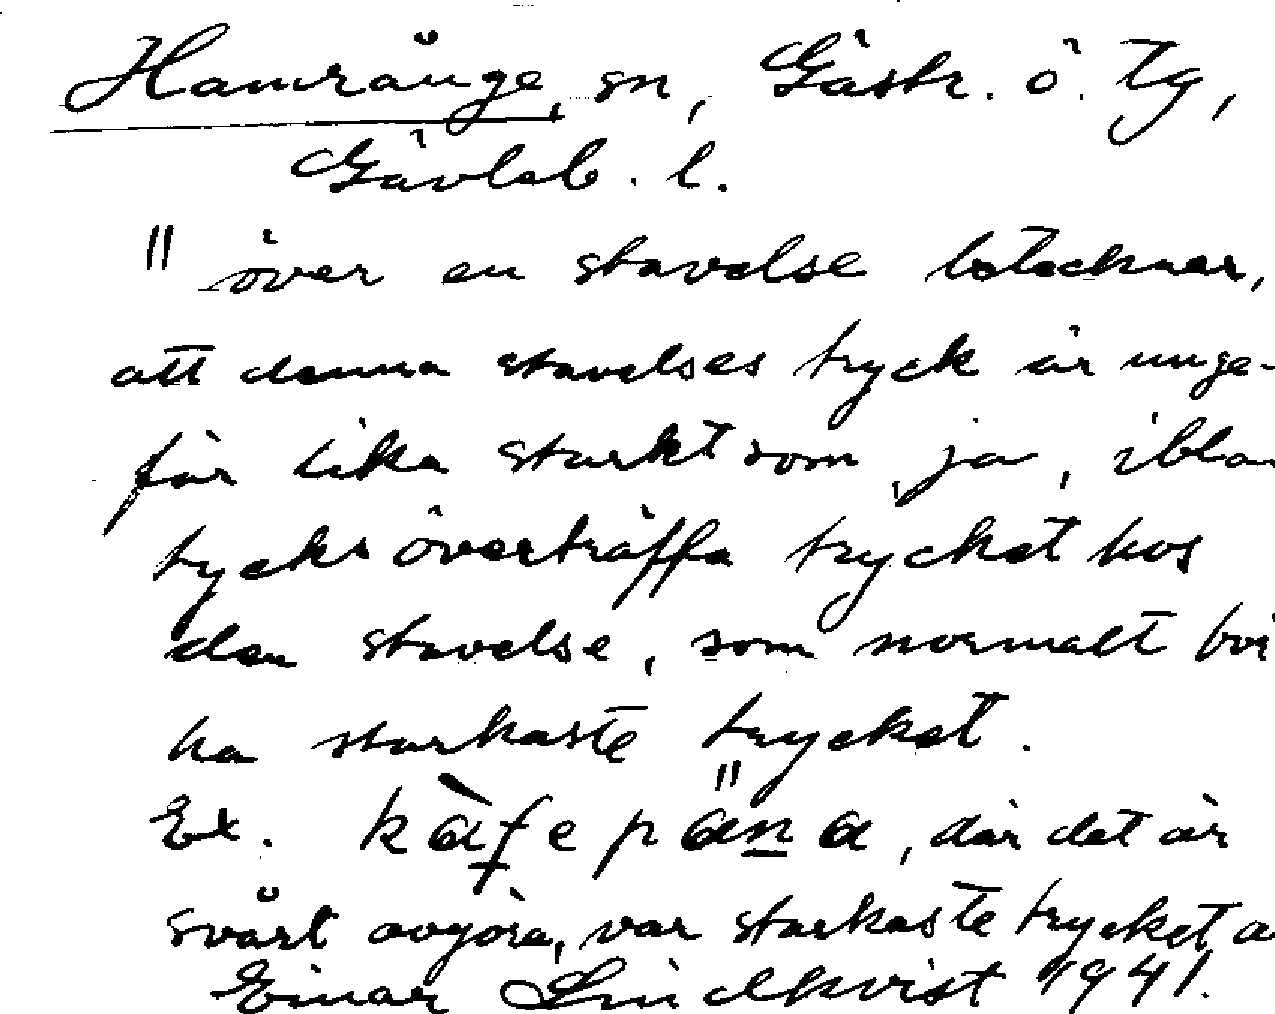 Hamrånge, sn, Gästr. ö. tg,
Gävleb. l.
" över en stavelse betecknar,
att denna stavelses tryck är unge-
fär lika starkt som, ja, iblan
tycks överträffa trycket hos
den stavelse, som normalt bör
ha starkaste trycket.
Ex. kàfepäna, där det är
svårt avgöra, var starkaste trycket
Einar Lindkvist 1941.